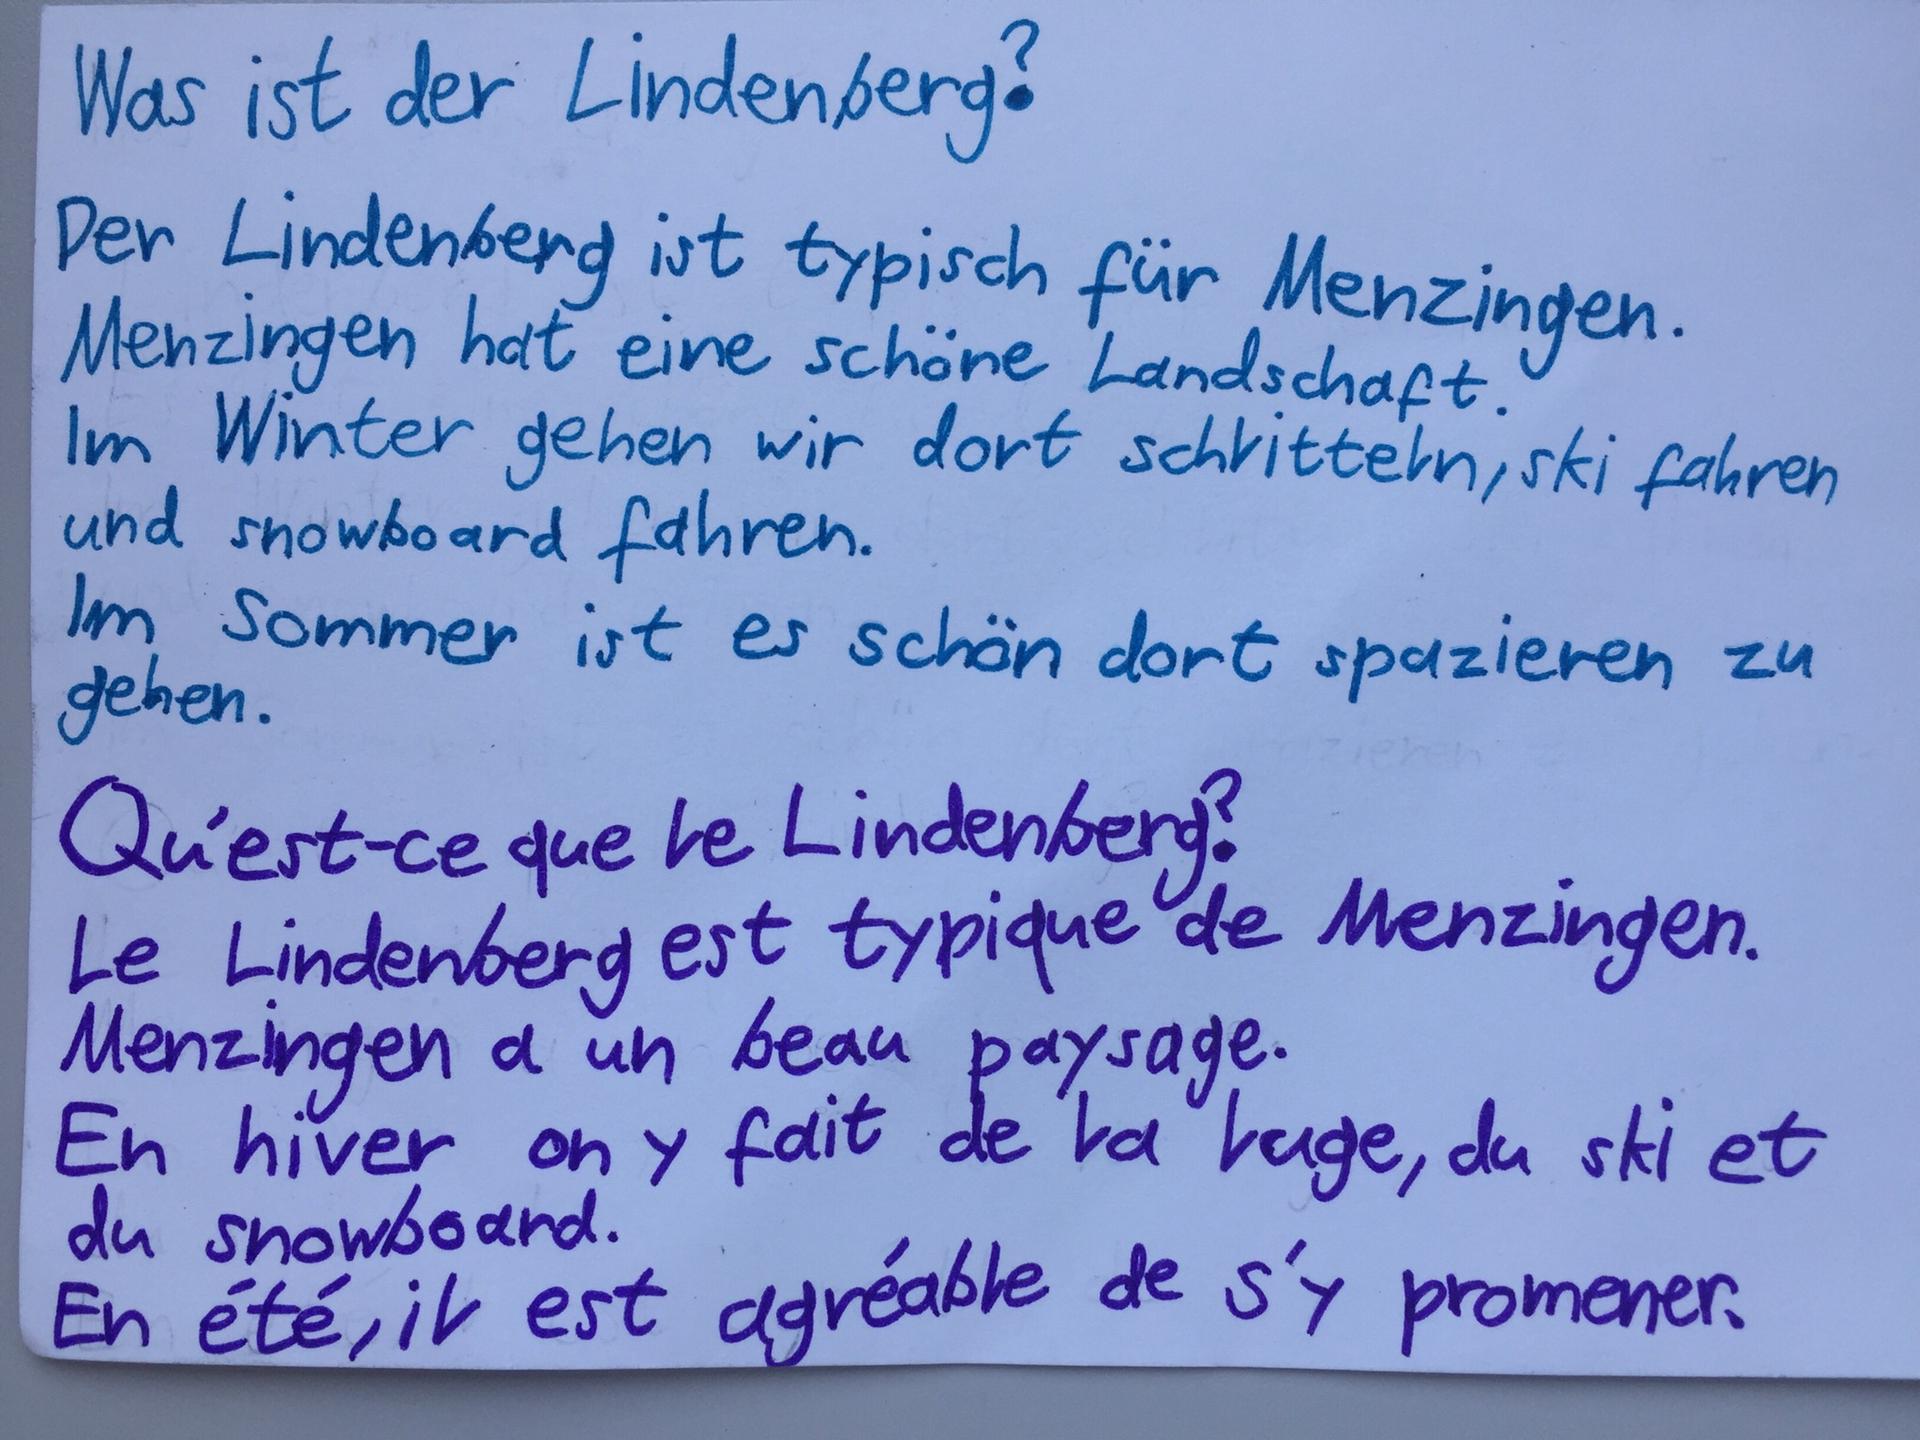 Was ist der Lindenberg?
Der Lindenberg ist typisch für Menzingen.
Menzingen hat eine schöne Landschaft.
Im Winter gehen wir dort schlitteln, ski fahren
und snowboard fahren.
Im Sommer ist es schön dort spazieren zu
gehen.
Qu'est-ce que le Lindenberg?
Le Lindenberg est typique de Menzingen.
Menzingen a un beau paysage.
En hiver on y fait de la luge, du ski et
du snowboard.
En été, il est agréable de s'y promener.